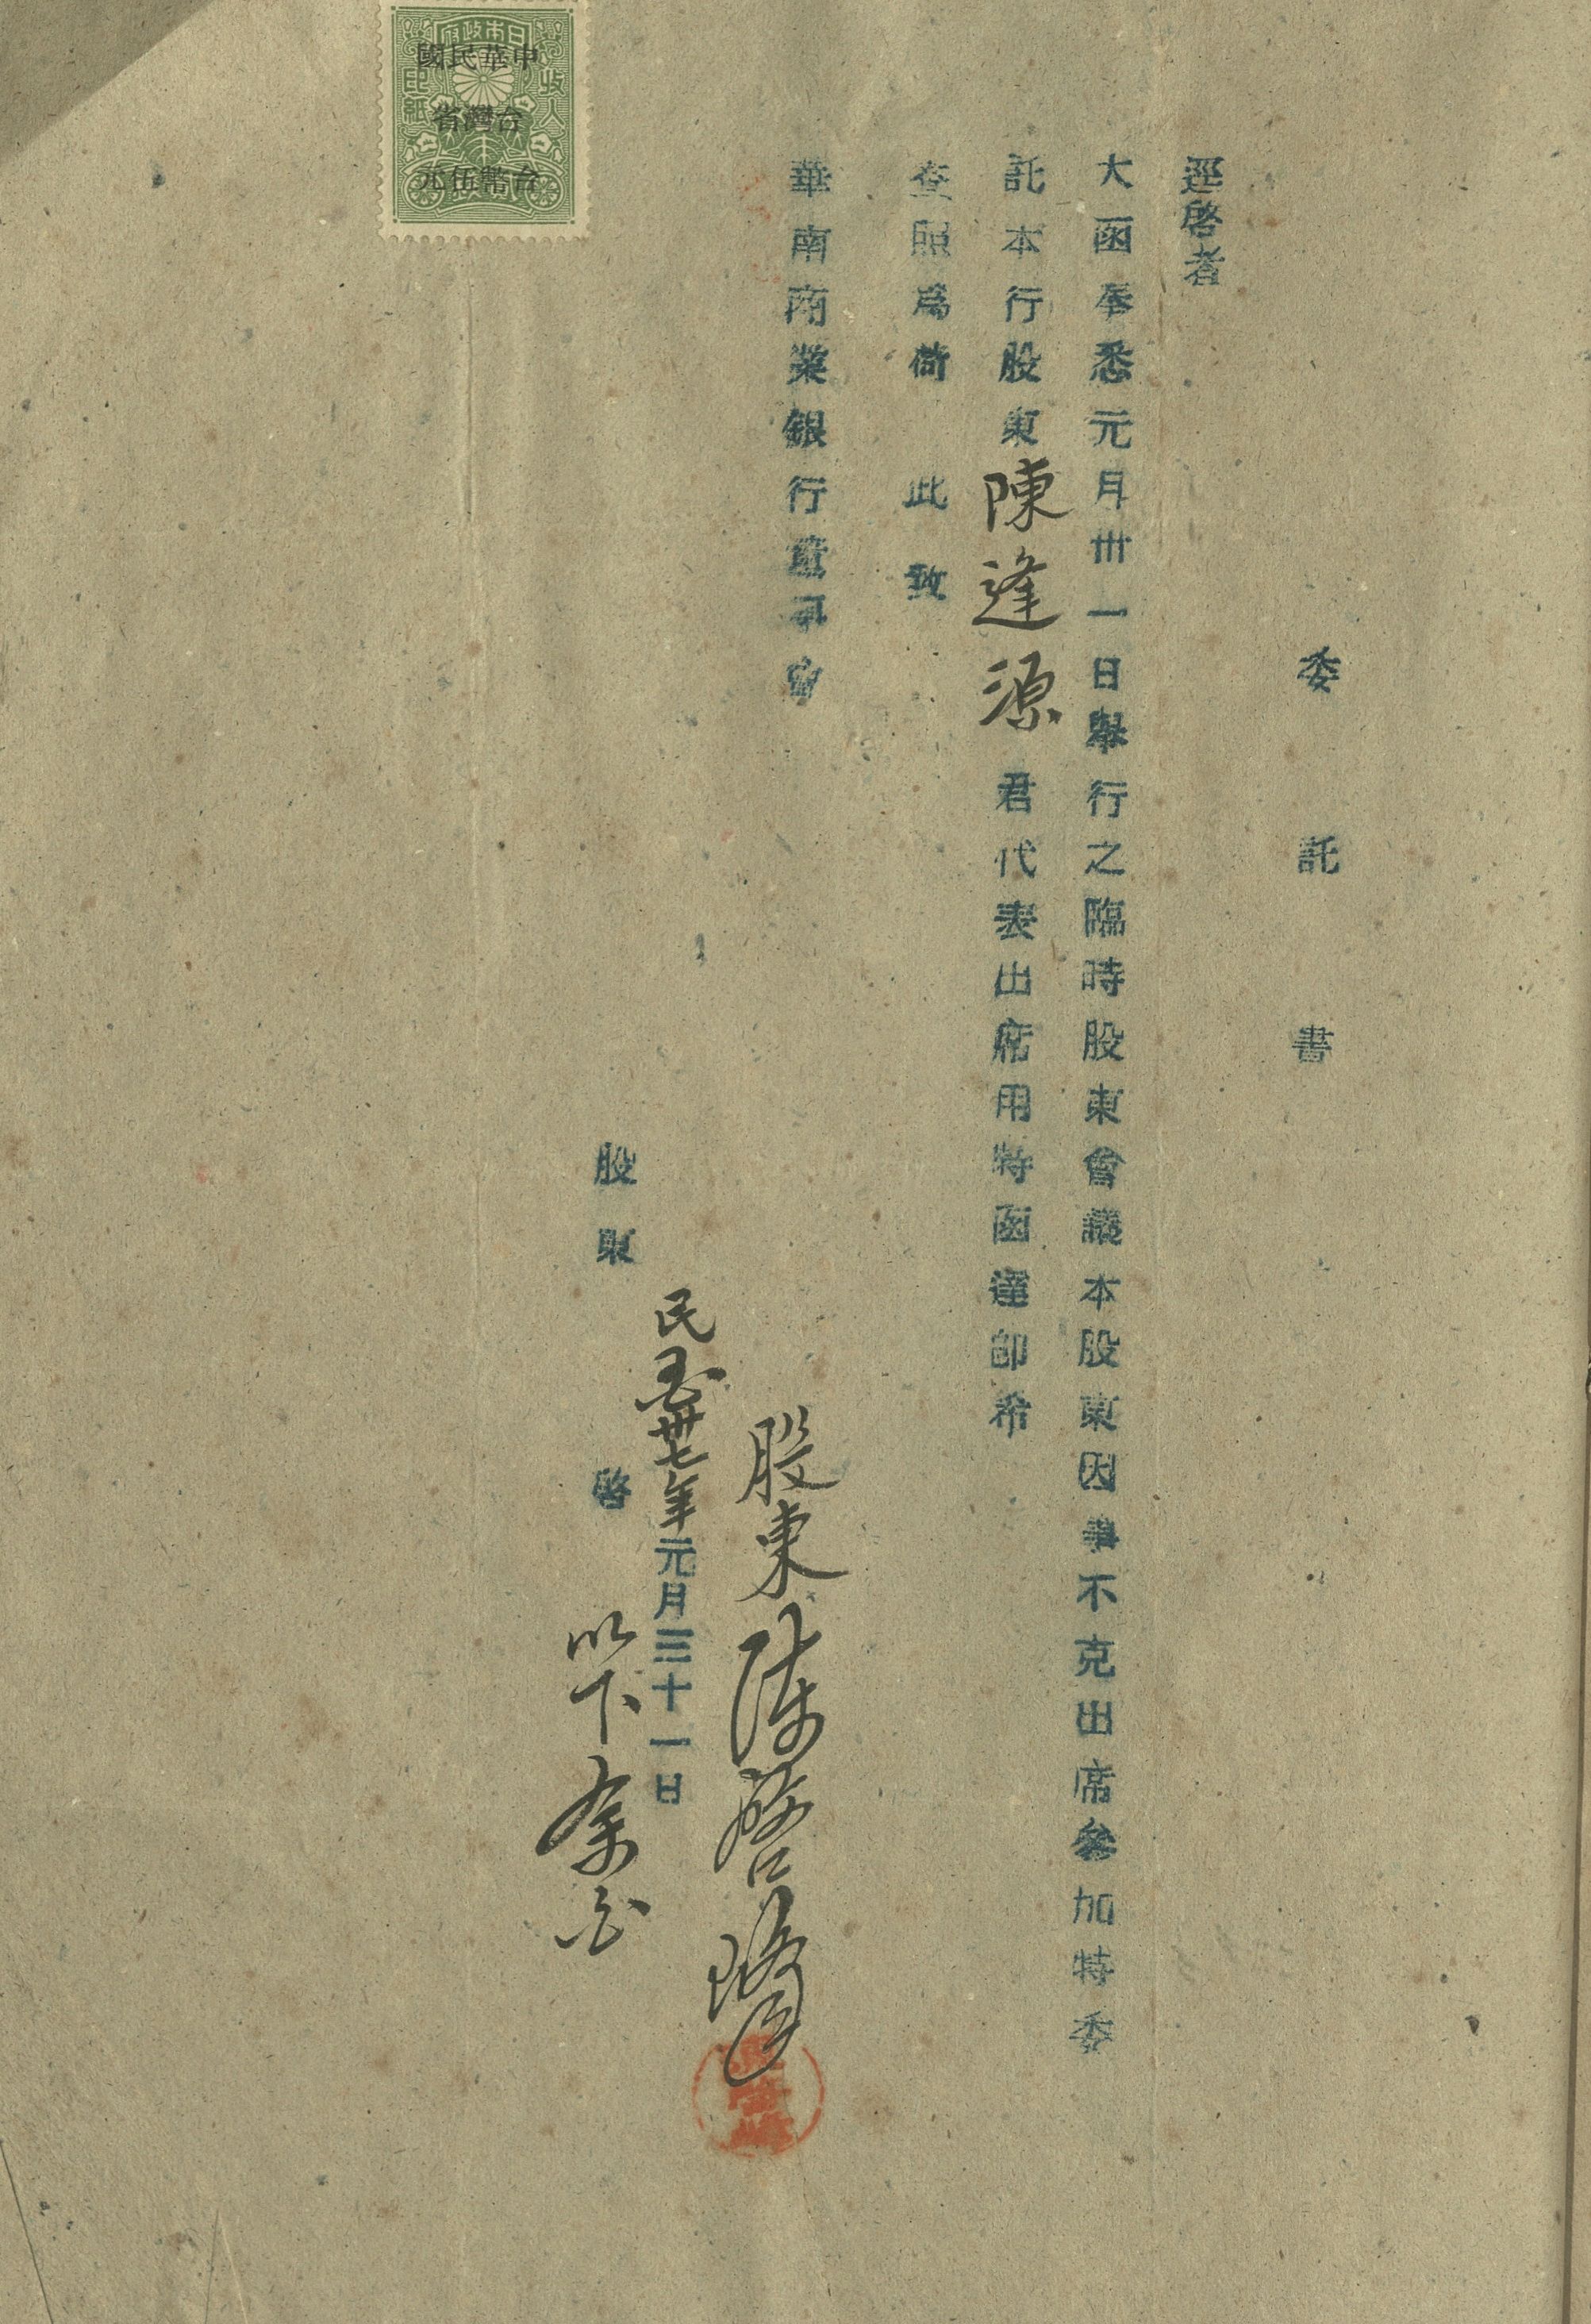 委託書
逕啓者
大函奉悉元月卅一日舉行之臨時股東會議本股東因事不克出席參加特委
託本行股東陳逢源君代表出席用特函達即希
查照爲荷 此致
華南商業銀行董事會
股東陳啓
民國卅七年元月三十一日
股東 啓
以下余白
日本政府
收入印紙
中華民國
台灣省
台幣伍元